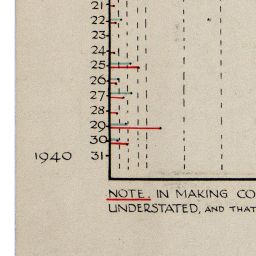 21
22
23
24
25
26
27
28
29
30
1940 31
NOTE. IN MAKING CO
UNDERSTATED, AND THAT